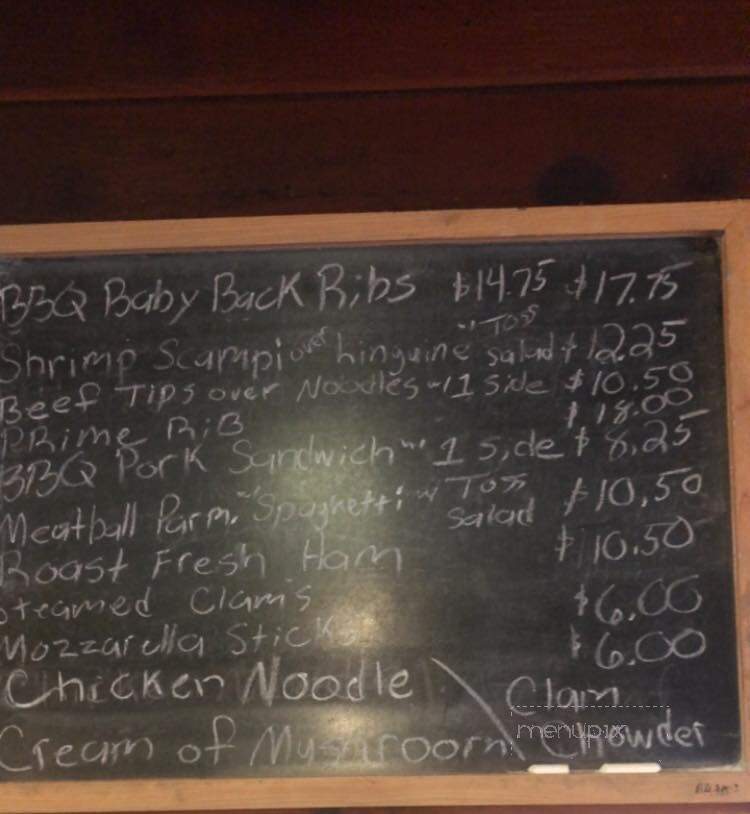 BBQ Baby Back Ribs $14.75 $17.75
Shrimp Scampi over hinguine w/ Toss salad $12.25
Beef Tips over Noodles w/ 1 side $10.50
PRime RiB $18.00
BBQ Pork Sandwich w/ 1 side $8.25
Meatball Parm. w/ Spaghetti w/ Toss Salad $10.50
Roast Fresh Ham $10.50
Steamed Clams $6.00
Mozzarella Sticks $6.00
Chicken Noodle \ Clam
Cream of Mushroom \ Chowder
menupix